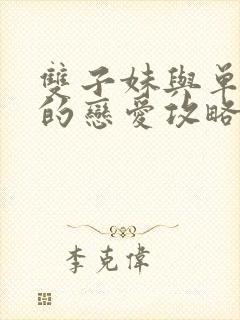 雙子妹與單
的戀愛攻略
李克偉